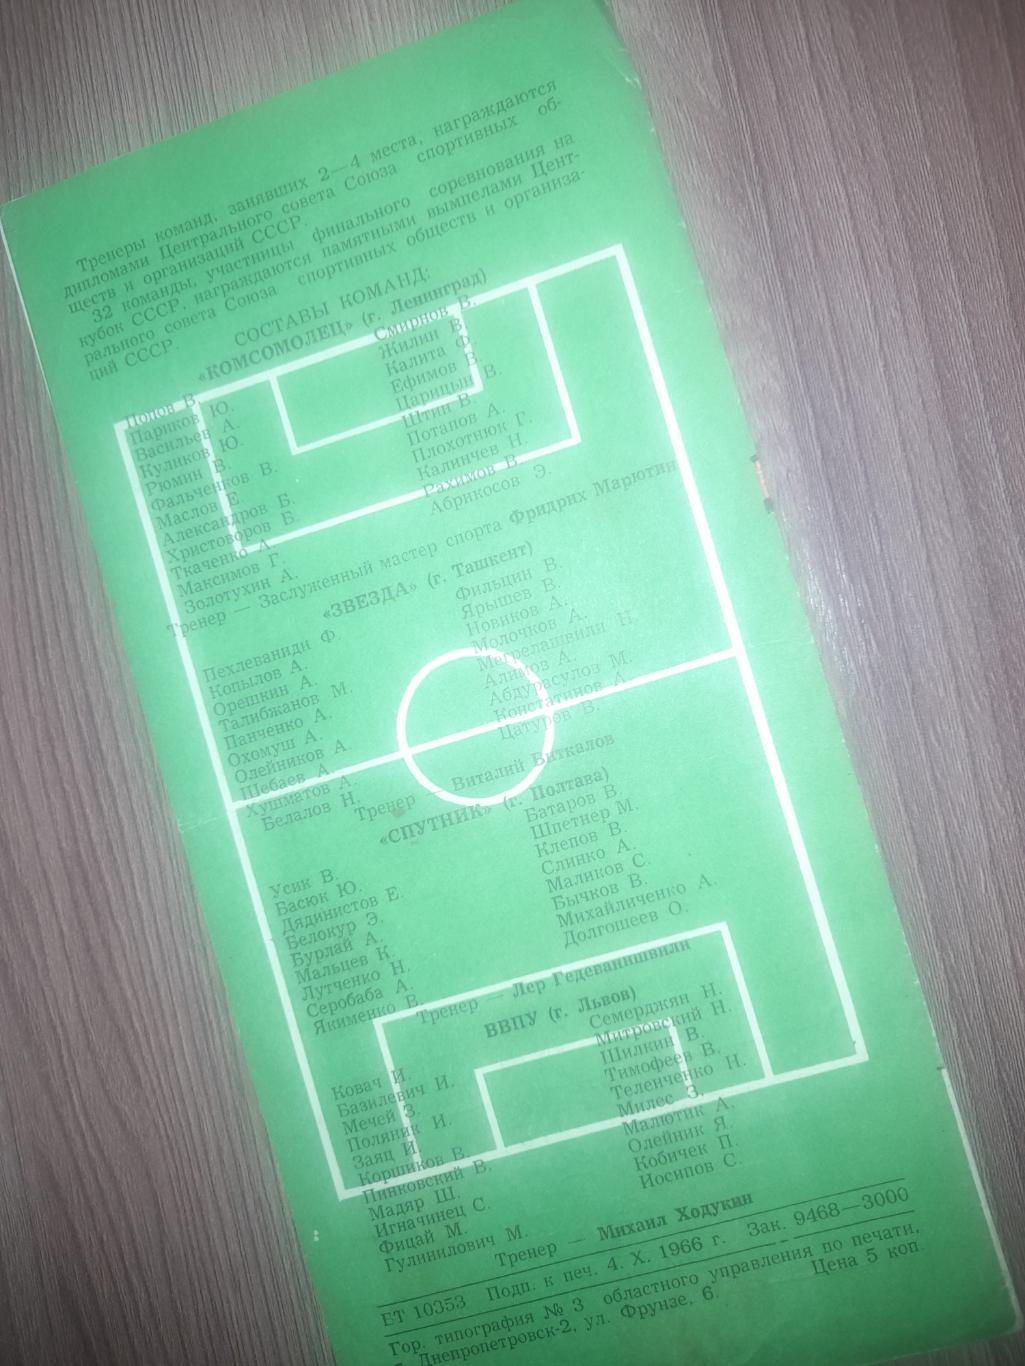 Тренеры команд, занявших 2—4 места, награждаются
дипломами Центрального совета Союза спортивных об-
ществ и организаций СССР.
32 команды, участницы финального соревнования на
кубок СССР, награждаются памятными вымпелами Цент-
рального совета Союза спортивных обществ и организа-
ций СССР.
СОСТАВЫ КОМАНД:
«КОМСОМОЛЕЦ» (г. Ленинград)
Попов В.
Париков Ю.
Васильев А.
Куликов Ю.
Рюмин В.
Фальченков В.
Маслов Е.
Александров Б.
Христоворов Б.
Ткаченко А.
Максимов Г.
Золотухин А.
Смирнов В.
Жилин В.
Калита Ф.
Ефимов В.
Царицын В.
Штин В.
Потапов А.
Плохотнюк Г.
Калинчев Н.
Рахимов В.
Абрикосов Э.
Тренер — Заслуженный мастер спорта Фридрих Марютин
«ЗВЕЗДА» (г. Ташкент)
Пехлеваниди Ф.
Копылов А.
Орешкин А.
Талибжанов М.
Панченко А.
Охомуш А.
Олейников А.
Шебаев А.
Хушматов А.
Белалов Н.
Фильцин В.
Ярышев В.
Новиков А.
Молочков А.
Мегрелашвили Н.
Алимов А.
Абдурасулов М.
Констатинов А.
Цатуров В.
Тренер — Виталий Виткалов
«СПУТНИК» (г. Полтава)
Усик В.
Басюк Ю.
Дядинистов Е.
Белокур Э.
Бурлай А.
Мальцев К.
Лутченко Н.
Серобаба А.
Якименко В.
Батаров В.
Шпетнер М.
Клепов В.
Слинко А.
Маликов С.
Бычков В.
Михайличенко А.
Долгошеев О.
Тренер — Лер Гедеванишвили
ВВПУ (г. Львов)
Ковач И.
Базилевич И.
Мечей З.
Поляник И.
Заяц И.
Коршиков В.
Пинковский В.
Мадяр Ш.
Игначинец С.
Фицай М.
Гулинилович М.
Семерджян Н.
Митровский Н.
Шилкин В.
Тимофеев В.
Теленченко Н.
Милес З.
Малютик А.
Олейник Я.
Кобичек П.
Иосипов С.
Тренер — Михаил Ходукин
ЕТ 10353 Подп. к печ. 4. X. 1966 г. Зак. 9468—3000
Гор. типография № 3 областного управления по печати,
Днепропетровск-2, ул. Фрунзе, 6. Цена 5 коп.